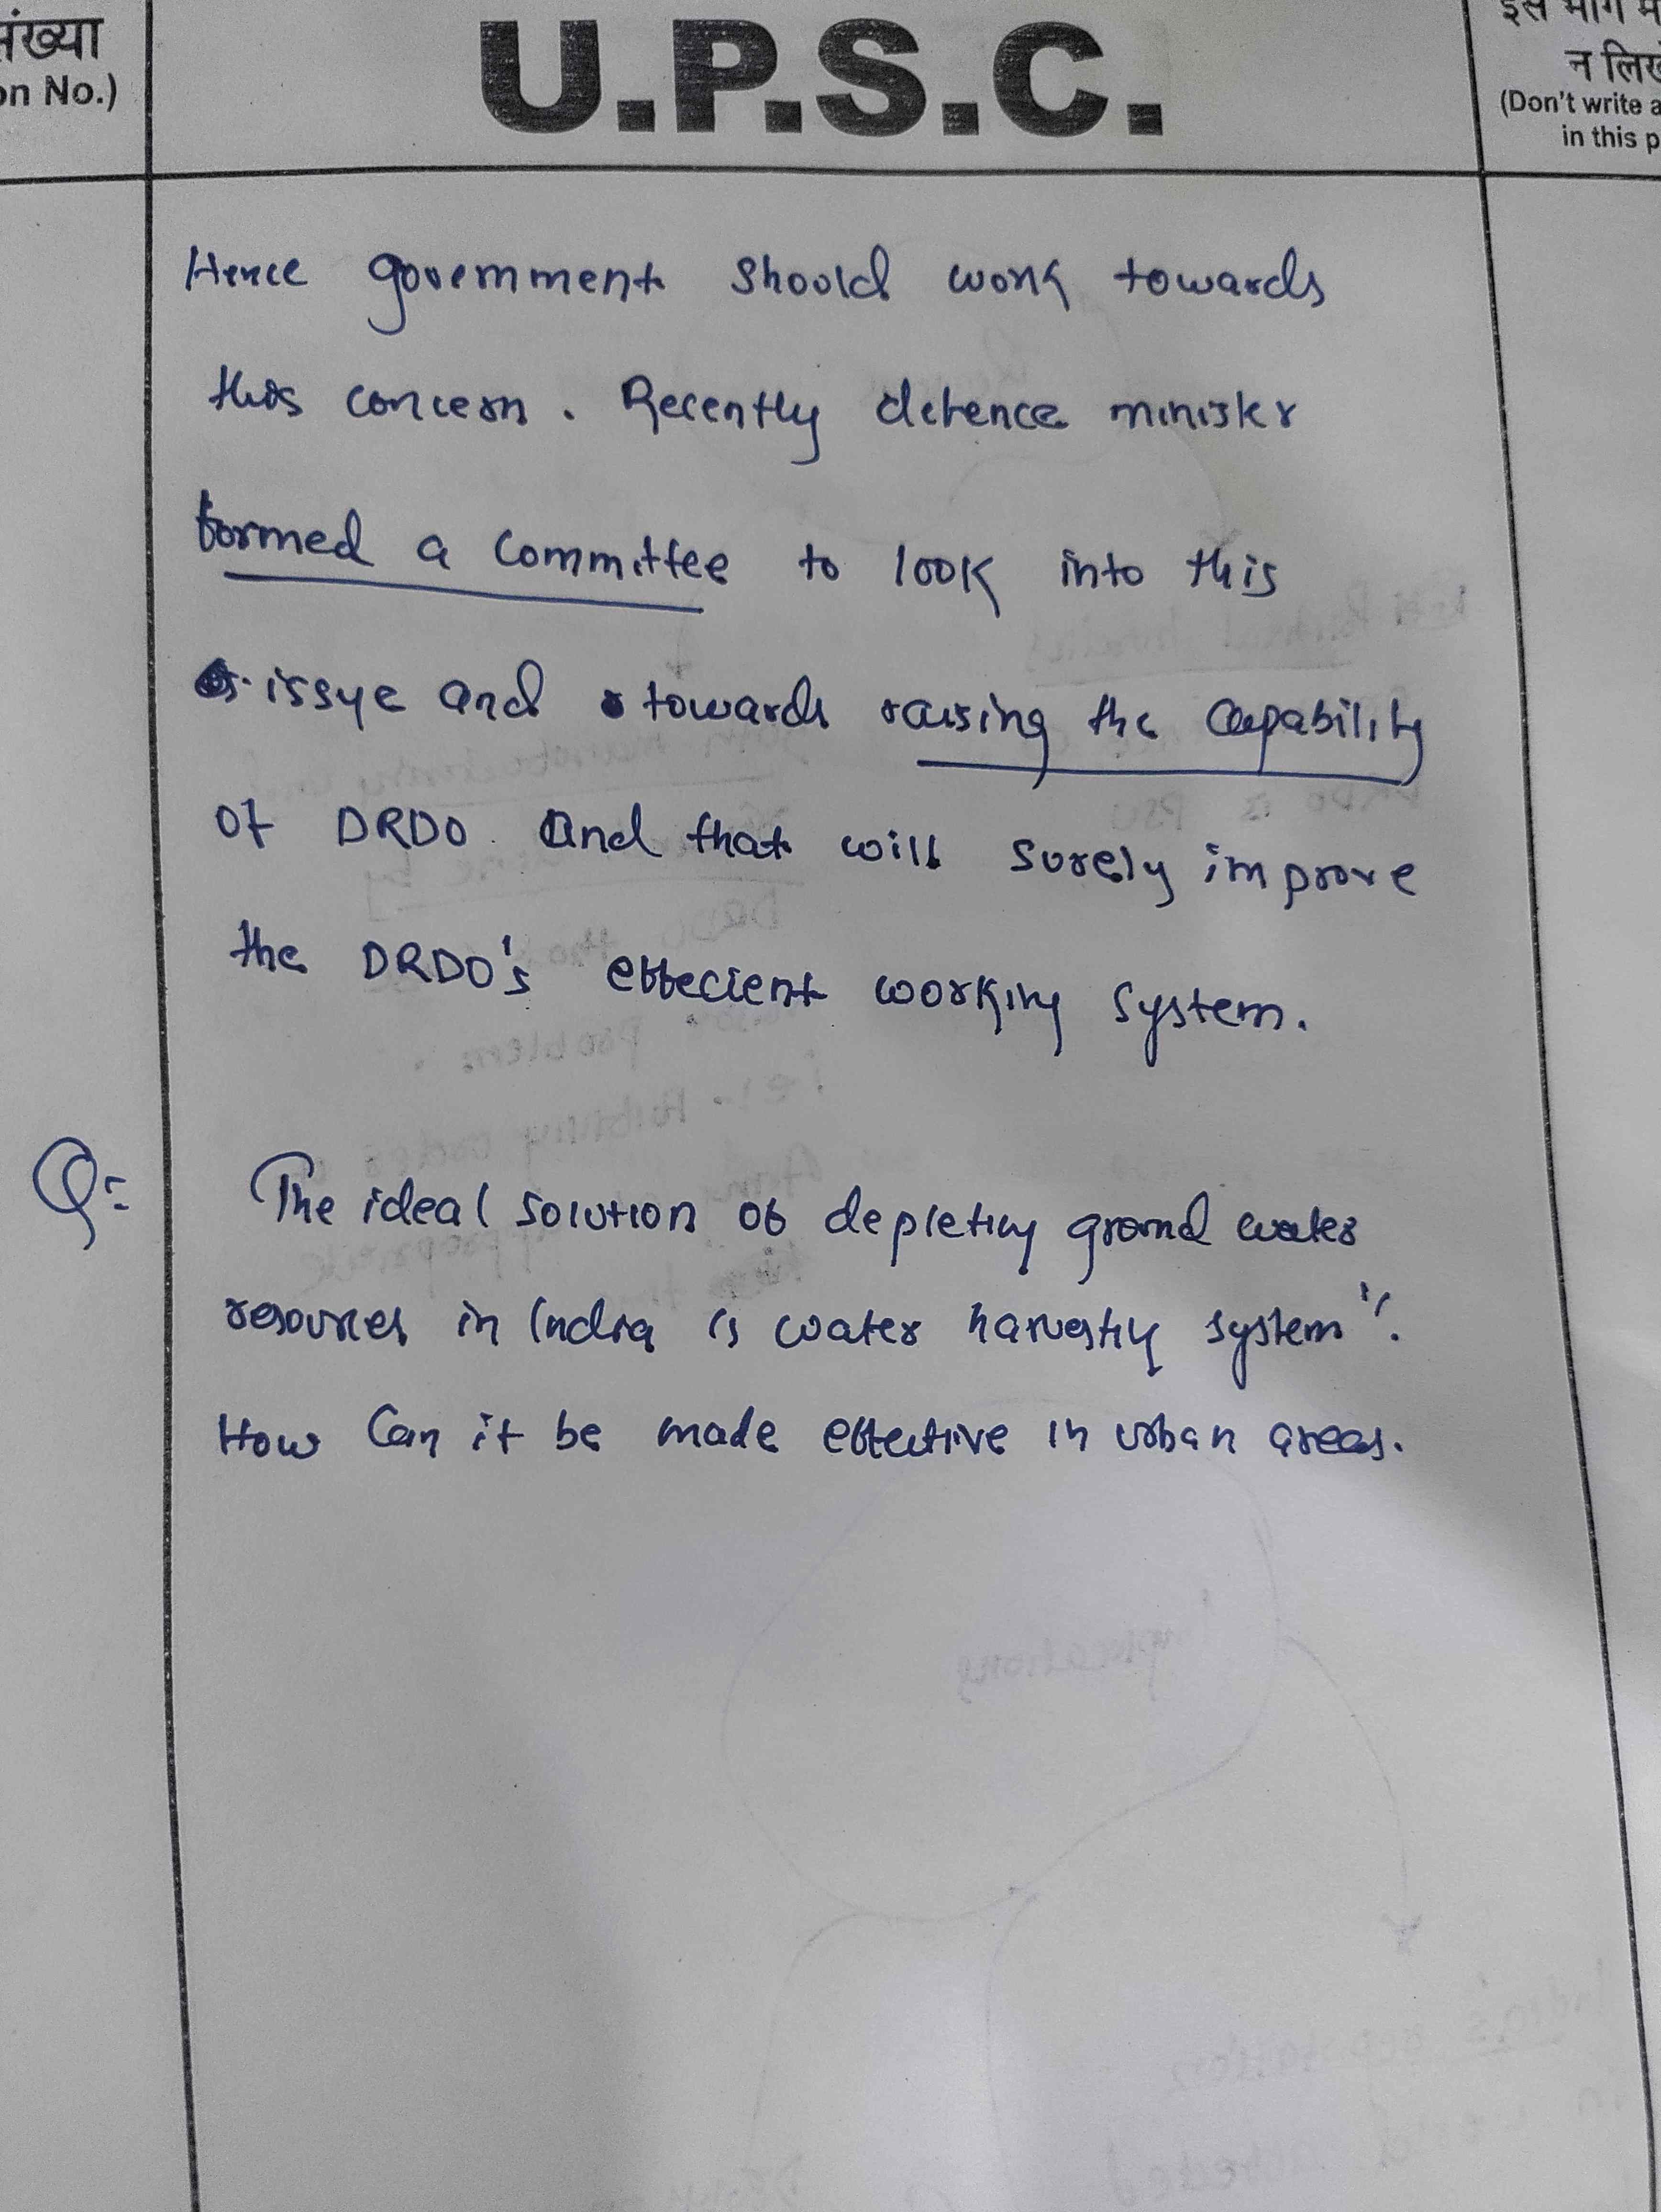 संख्या
on No.)
U.P.S.C.
इस भाग में
न लिखें
(Don't write a
in this p
Hence government should work towards
this concern. Recently defence minister
formed a committee to look into this
issye and towards raising the capability
of DRDO. And that will surely improve
the DRDO's effecient working system.
Q:- The ideal solution of depleting ground water
resources in India is water harvesting system".
How can it be made effective in urban areas.